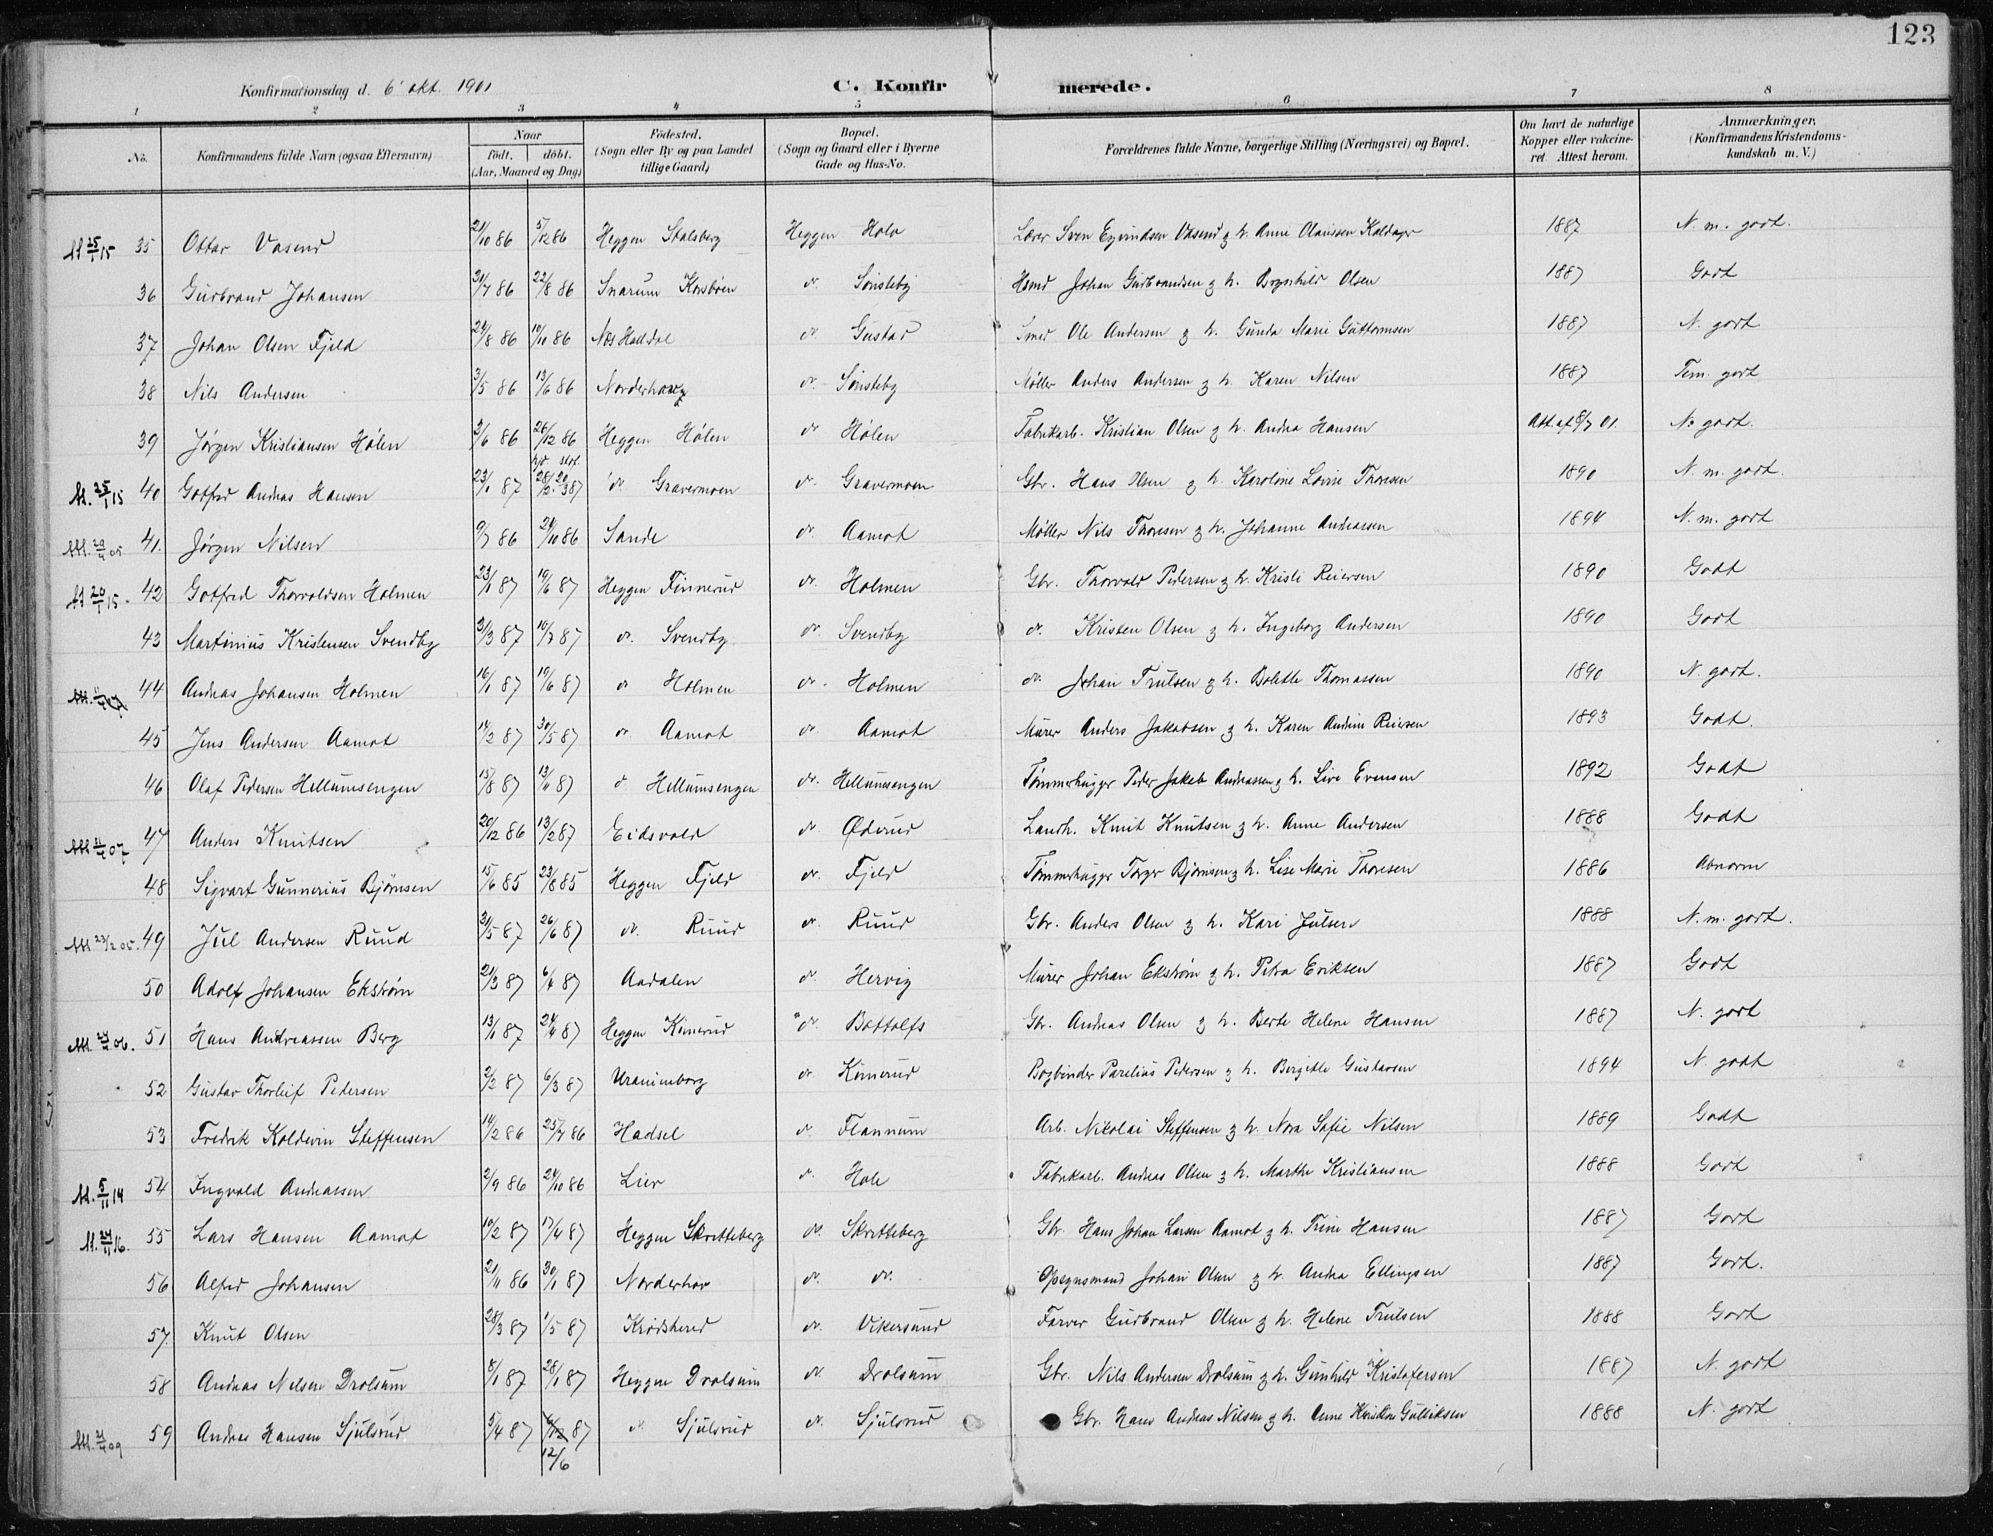 123
Konfirmationsdag d. 6' okt. 1901 C. Konfirmerede.
1 2 3 4 5 6 7 8
No. Konfirmandens fulde Navn (ogsaa Efternavn) Naar født. døbt. (Aar, Maaned og Dag) Fødested. (Sogn eller By og paa Landet tillige Gaard) Bopæl. (Sogn og Gaard eller i Byerne Gade og Hus-No. Forældrenes fulde Navne, borgerlige Stilling (Næringsvei) og Bopæl. Om havt de naturlige Kopper eller vakcineret Attest herom. Anmærkninger. (Konfirmandens Kristendomskundskab m. V.)
35 Ottar Vasend 21/10 86 5/12 86 Heggen Stalsberg Heggen Hole Lærer Sven Eyvindsen Vasend g. h. Anne Olaussen 1887 N. m. godt.
36 Gudbrand Johansen 31/7 86 22/8 86 Snarum Korsbøen do. Sønsteby Hsmd Johan Gudbrandsen g. h. Olsen 1887 Godt
37 Johan Olsen Fjeld 24/8 86 10/10 86 Næs Halldal do. Gustad Smed Ole Andersen g. h. Gunda Marie Guttormsen 1887 N. godt
38 Nils Andersen 3/5 86 13/6 86 Norderhov do. Sønsteby Møller Anders Andersen g. h. Karen Nilsen 1887 Tem. godt
39 Jørgen Kristiansen Hølen 3/6 86 26/12 86 Heggen Hølen do Hølen Fabrikarb. Kristian Olsen g. h. Andrea Hansen Att. af 8/7 01. N. godt.
40 Gotfred Andreas Hansen 23/1 87 do. Gravermoen do. Gravermoen Gbr. Hans Olsen g. h. Karoline Lovise Thoresen 1890 N. m. godt.
41. Jørgen Nilsen 9/7 86 24/10 86 Sande do. Aamot Møller Nils Thoresen g. h. Johanne Andreassen 1894 N. m. godt
42 Gotfred Thorvaldsen Holmen 23/1 87 19/6 87 Heggen Finnerud do. Holmen Gbr. Thorvald Pedersen g. h. Kristi Reiersen 1890 Godt
43 Martinius Kristensen Svendby 3/3 87 10/7 87 do. Svendby do. Svendby do. Kristen Olsen g. h. Ingeborg Andersen 1890 Godt
44 Andreas Johansen Holmen 16/1 87 19/6 87 do Holmen do. Holmen do. Johan Trulsen g. h. Bolette Thomassen 1890 N. godt.
45 Jens Andersen Aamot 14/2 87 30/5 87 do. Aamot do Aamot Murer Anders Jakobsen g. h. Karen Andrine Reiersen 1893 Godt.
46 Olaf Pedersen Hellumsengen 15/8 87 13/11 87 do Hellumsengen do. Hellumsengen Tømmerhugger Peder Jakob Andreassen g. h. Live Evensen 1892 Godt
47 Anders Knutsen 20/12 86 13/2 87 Eidsvold do Øderud Landh. Knut Knutsen g. h. Anne Andersen 1888 Godt
48 Sigvart Gunnerius Bjørnsen 15/6 85 23/8 85 Heggen Fjeld do. Fjeld Tømmerhugger Torger Bjørnsen g. h. Lise Marie Thoresen 1886 Abnorm
49 Jul Andersen Ruud 31/5 87 26/6 87 do. Ruud do. Ruud Gbr. Anders Olsen g. h. Kari Julsen 1888 N. m. godt.
50 Adolf Johansen Ekstrøm 21/3 87 6/4 87 Aadalen do. Hervig Murer Johan Ekstrøm g. h. Petra Eriksen 1887 Godt
51 Hans Andreassen Berg 13/1 87 24/4 87 Heggen Kimerud do. Bottolfs Gbr. Andreas Olsen g. h. Berte Helene Hansen 1887 N. godt
52 Gustav Thorleif Pedersen 2/2 87 6/3 87 Uranienborg do. Kimerud Bogbinder Parelius Pedersen g. h. Bergitte Gustavsen 1894 N. godt
53 Fredrik Koldevin Steffensen 14/2 86 25/7 86 Hadsel do. Flannum Arb. Nikolai Steffensen g. h. Nora Sofie Nilsen 1889 Godt
54 Ingvald Andreassen 2/9 86 24/10 86 Lier do. Hole Fabrikarb. Andreas Olsen g h. Marthe Kristiansen 1888 Godt
55 Lars Hansen Aamot 10/2 87 17/4 87 Heggen Skretteberg do. Skretteberg Gbr. Hans Johan Larsen Aamot g. h. Trine Hansen 1887 Godt
56 Alfred Johansen 21/11 86 30/1 87 Norderhov do. do. Opsynsmand Johan Olsen g h. Andrea Ellingsen 1887 Godt.
57. Knut Olsen 28/3 87 1/5 87 Krødsherred do. Vikersund Farver Gudbrand Olsen g. h. Helene Trulsen 1888 Godt
58 Andreas Nilsen Drolsum 8/1 87 28/1 87 Heggen Drolsum do. Drolsum Gbr. Nils Andersen Drolsum g. h. Gunhild Kristofersen 1887 N. godt
59 Andreas Hansen Sjulsrud 5/4 87 87 12/6 do Sjulsrud do. Sjulsrud Gbr. Hans Andreas Nilsen g. h. Anne Gulliksen 1888 N. godt